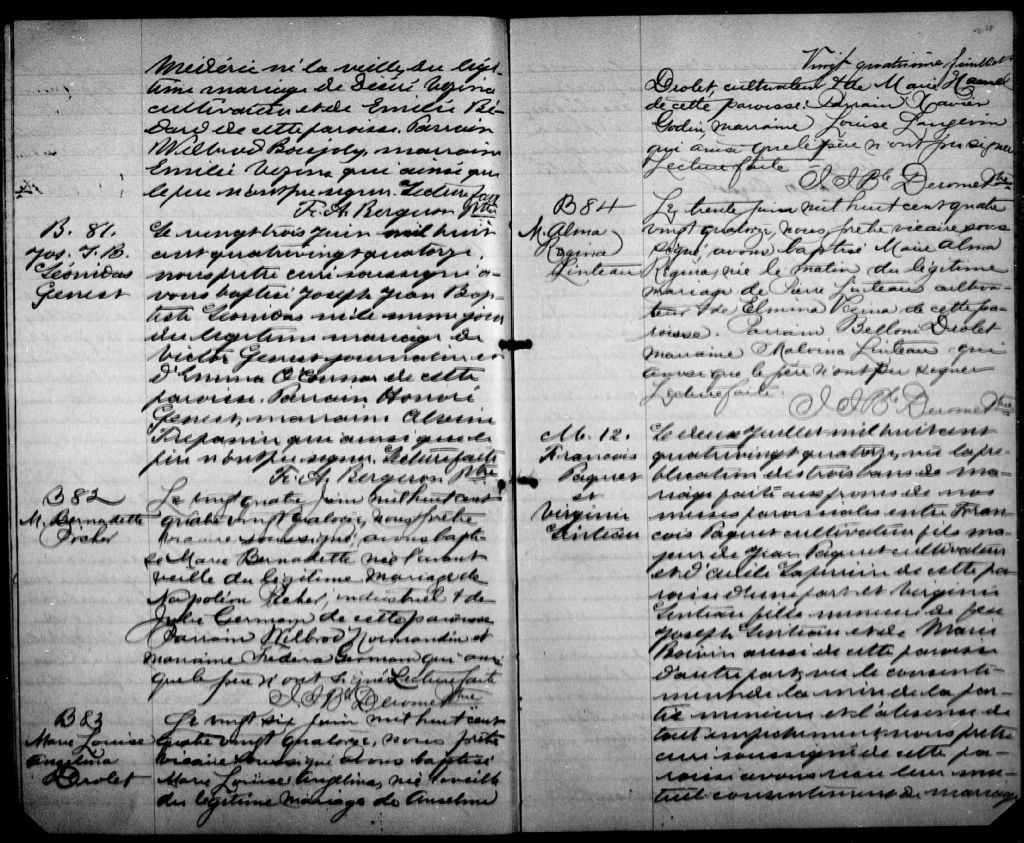 Mederic né la veille, du légi-
time mariage de Désiré Vezina
cultivateur et de Emélie Bé-
dard de cette paroisse. Parrain
Wilbrod Beaujoly, marraine
Emélie Vezina qui ainsi que
le père n'ont pu signer. Lecture faite
Fr. A. Bergeron ptre
B. 81.
Jos. J. B.
Léonidas
Genest
Le vingt trois Juin mil huit
cent quatrevingt quatorze,
nous prêtre curé soussigné a-
vons baptisé Joseph Jean Bap-
tiste Léonidas né le même jour
du légitime mariage de
Victor Genest journalier et
d'Emma O'Connor de cette
paroisse. Parrain Honoré
Genest, marraine
Trépanier qui ainsi que le
père n'ont pu signer. Lecture faite
Fr. A. Bergeron ptre
B 82
M. Bernadette
Pocher
Le vingt quatre juin mil huit cent
quatre vingt quatorze, nous prêtre
vicaire soussigné, avons bapti-
sé Marie Bernadette née l'avant
veille du légitime mariage de
Napoléon industriel & de
Julie Germain de cette paroisse
Parrain Wilbrod Normandin et
marraine Germain qui ainsi
que le père n'ont signé Lecture faite
J J Bte Derome Ptre
B 83
Marie Louise
Angelina
Drolet
Le vingt six juin mil huit cent
quatre vingt quatorze, nous prêtre
vicaire soussigné avons baptisé
Marie Louise Angelina, née la veille
du légitime mariage de Anselme
Vingt quatrième feuillet
Drolet, cultivateur & de Marie Hamel
de cette paroisse: Parrain Xavier
Godin, marraine Louise Langevin
qui ainsi que le père n'ont pu signer
Lecture faite
J J Bte Derome Ptre
B 84
M. Alma
Regina
Linteau
Le trente juin mil huit cent quatre
vingt quatorze, nous prêtre vicaire sous
signé, avons baptisé Marie Alma
Regina, née le matin du légitime
mariage de Pierre Linteau cultiva-
teur & de Elmina Vezina de cette pa-
roisse. Parrain Drolet
marraine Malvina Linteau qui
ainsi que le père n'ont pu signer
Lecture faite.
J J Bte Derome Ptre
M. 12.
François
Paquet
et
Virginie
Linteau
Le deux Juillet mil huit cent
quatrevingt quatorze, vu la pu-
blication des trois bans de ma-
riage faite aux prones de nos
messes paroissiales entre Fran-
cois Paquet cultivateur fils ma-
jeur de Jean Paquet cultivateur
et d' de cette pa-
roisse d'une part et Virginie
Linteau fille mineure de feu
Joseph Linteau et de Marie
Boivin aussi de cette paroisse
d'autre part, vu le consente-
ment de la mère de la par-
tie mineure et l'absence de
tout empêchement, nous prêtre
curé soussigné de cette pa-
roisse avons reçu leur mu-
tuel consentement de mariage